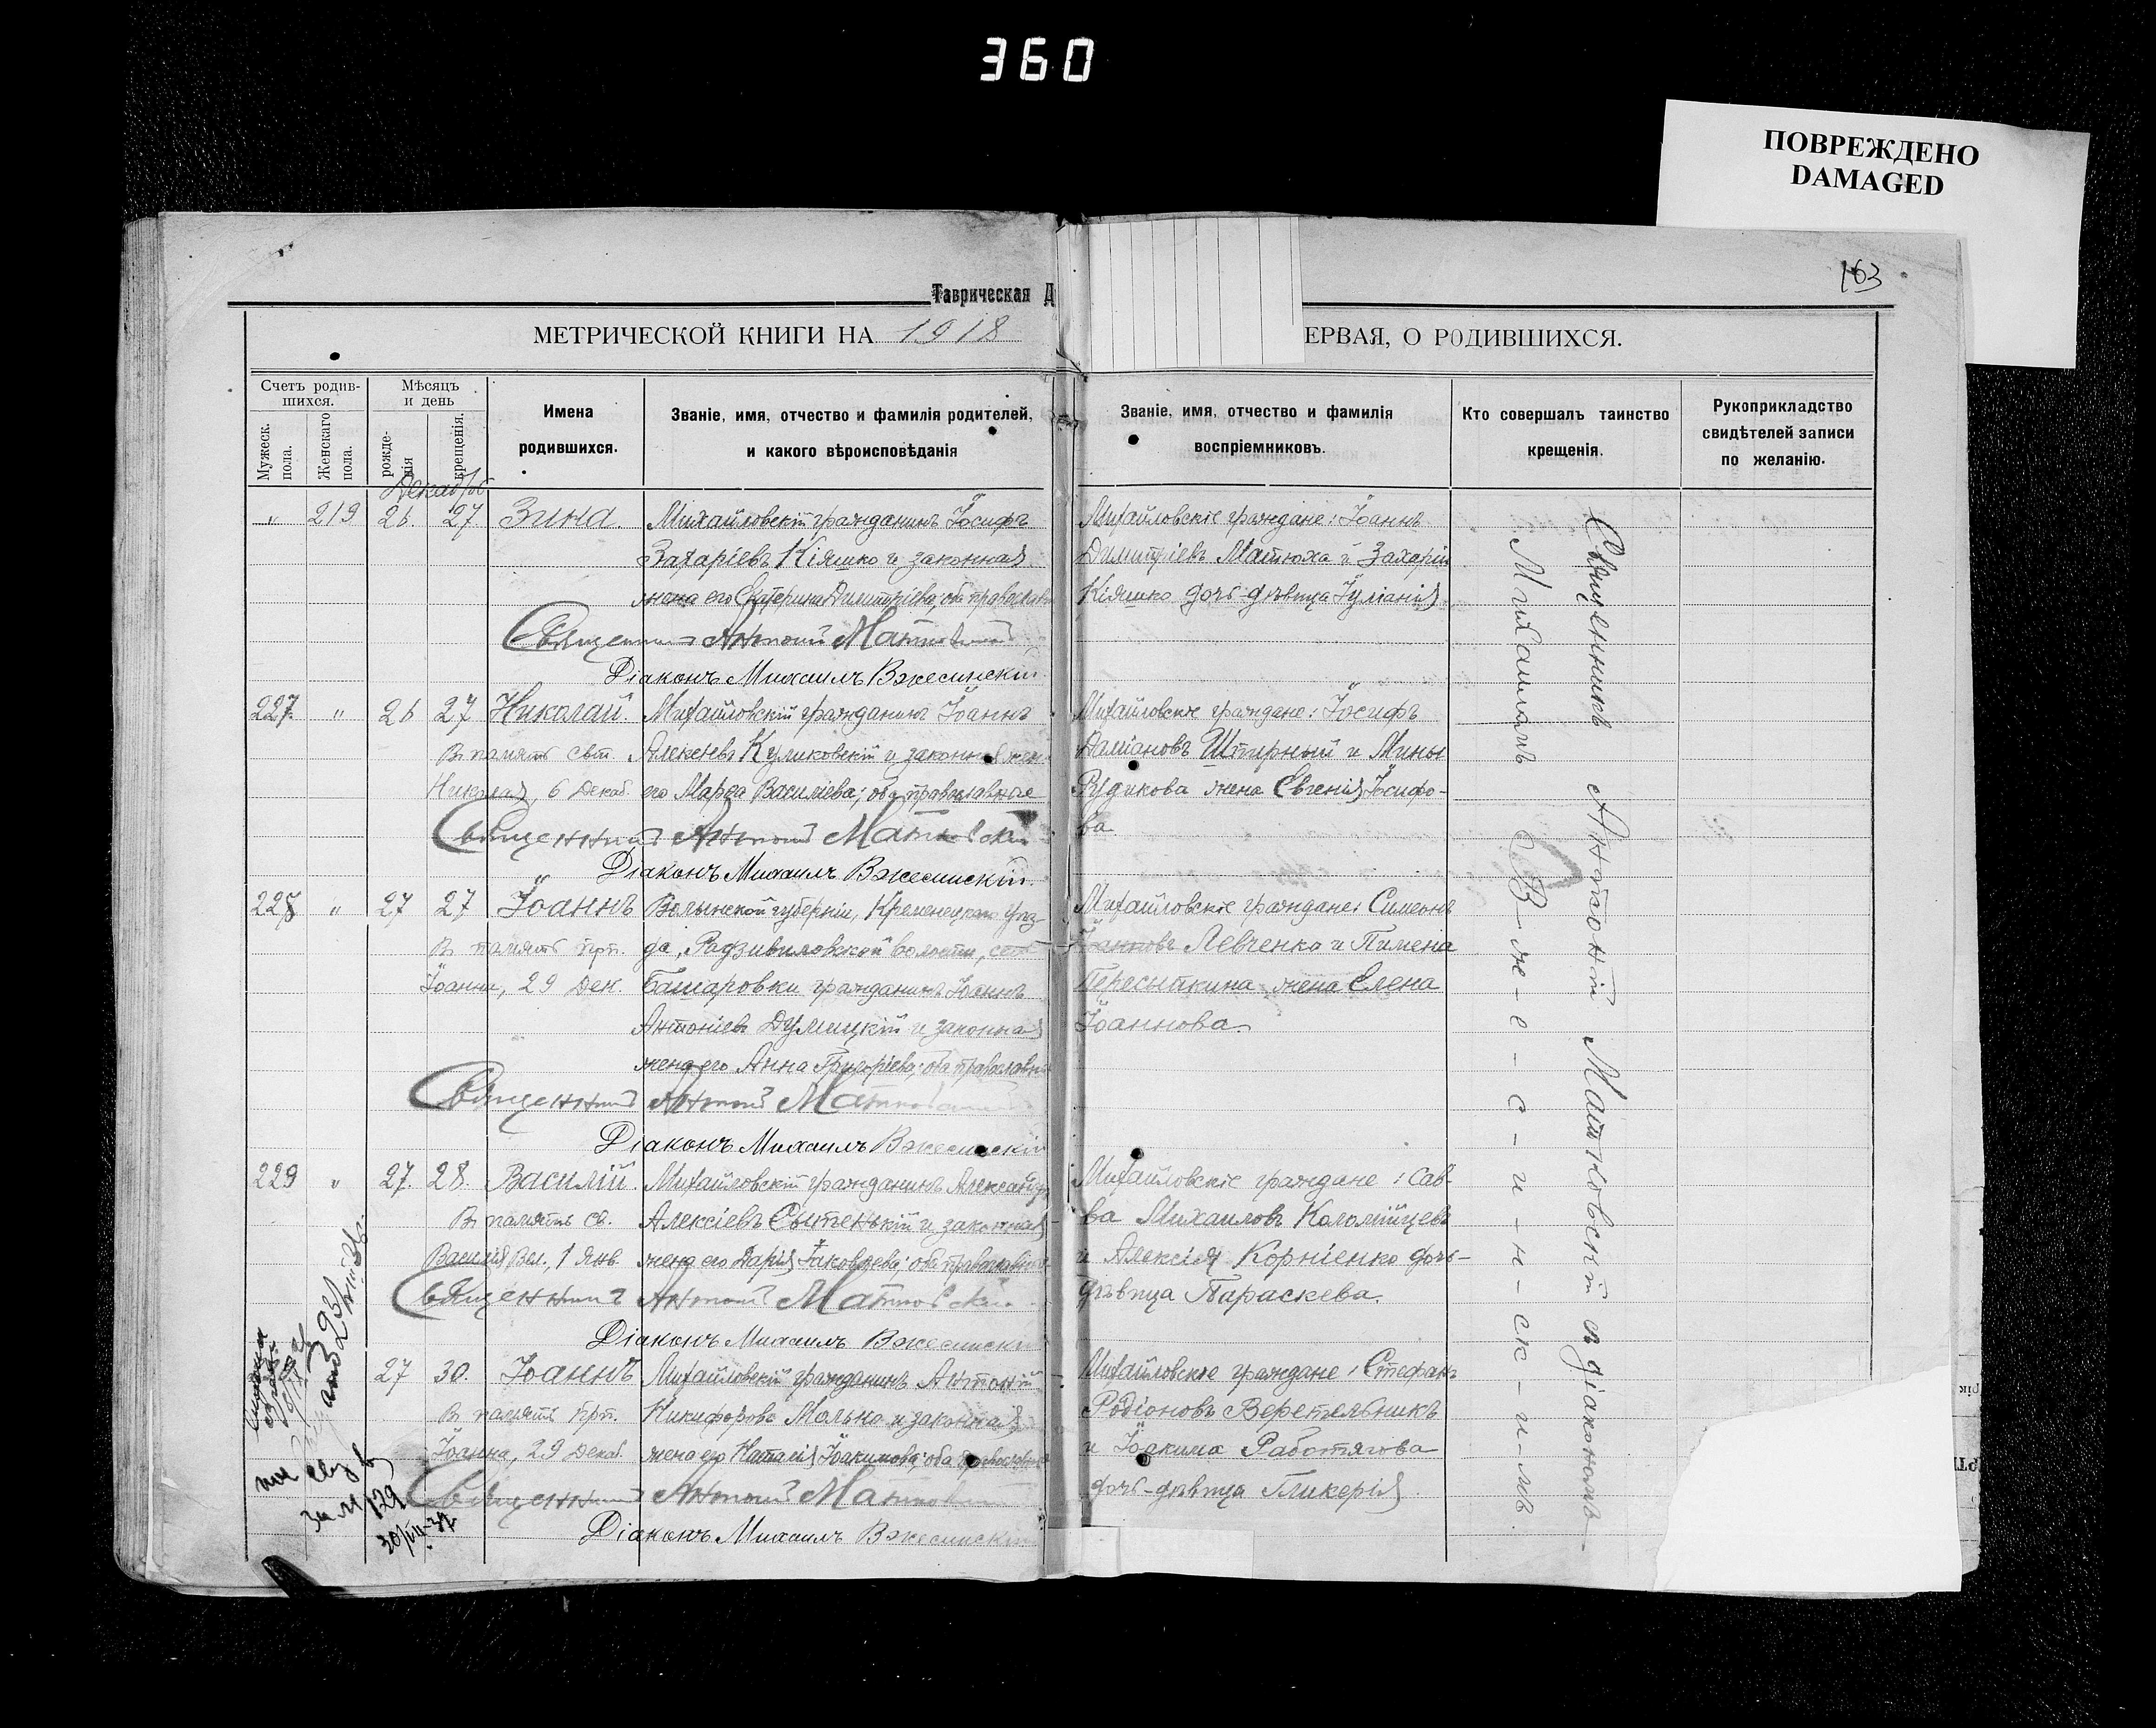 360
ПОВРЕЖДЕНО
DAMAGED
163
Таврическая Д
МЕТРИЧЕСКОЙ КНИГИ НА 1918
ЕРВАЯ, О РОДИВШИХСЯ.
Счетъ родив-
шихся.
Мужеск.
пола.
Женскаго
пола.
Мѣсяцъ
и день
рожде-
нія
крещенія.
Имена
родившихся.
Званіе, имя, отчество и фамилія родителей,
и какого вѣроисповѣданія
Званіе, имя, отчество и фамилія
воспріемниковъ.
Кто совершалъ таинство
крещенія.
Рукоприкладство
свидѣтелей записи
по желанію.
Декабрь
" 219 26 27. Зина. Михайловскій гражданинъ Іосифъ
Захаріевъ Кіяшко и законная
жена его Екатерина Димитріева, оба православн
Священникъ Антоній Матковскій
Діаконъ Михаилъ Вжесинскій
227. " 26 27 Николай. Михайловскій гражданинъ Іоаннъ
В память свт. Алексѣевъ Куликовскій и законная жен
Николая, 6 Декаб. его Марѳа Василіева; оба православные
Священникъ Антоній Матковскій
Діаконъ Михаилъ Вжесинскій.
228 " 27 27 Іоаннъ Волынской губерніи, Кременецкаго уѣз
В память прп. да, Радзивиловской волости,
Іоанна, 29 Дек. Башаровки гражданинъ Іоаннъ
Антоніевъ Думицкій и законная
жена его Анна Григоріева; оба православн
Священникъ Антоній Матковскій
Діаконъ Михаилъ Вжесинскій
229 " 27. 28. Василій. Михайловскій гражданинъ Александр
В память св. Алексіевъ Сытенькій и законная
Василія Вел., 1 Янв. жена его Дарія Іаковлева; оба православные
Священникъ Антоній Матковскій
Діаконъ Михаилъ Вжесинскій
27 30. Іоаннъ Михайловскій гражданинъ Антоній
В память прп. Никифоровъ Малько и законная
Іоанна, 29 Декаб. жена его Наталія Іоакимова; оба православные
Священникъ Антоній Матковскій
Діаконъ Михаилъ Вжесинскій
за № 129
Михайловскіе граждане: Іоаннъ
Димитріевъ Матюха и Захарій
Кіяшко дочь-дѣвица Іуліанія
Михайловскіе граждане: Іосифъ
Даміановъ Штирный и Мины
Рудикова жена Евгенія Іосифо-
ва
Михайловскіе граждане: Симеонъ
Іоанновъ Левченко и Пимена
Пересыпкина жена Елена
Іоаннова.
Михайловскіе граждане: Сав-
ва Михаиловъ Коломійцевъ
и Алексія Корніенко дочь-
дѣвица Параскева.
Михайловскіе граждане: Стефанъ
Родіоновъ Веретельникъ
и Іоакима Работягова
дочь-дѣвица Гликерія.
Священникъ Антоній Матковскій съ діакономъ
Михаиломъ В-ж-е-с-и-н-ск-и-мъ.